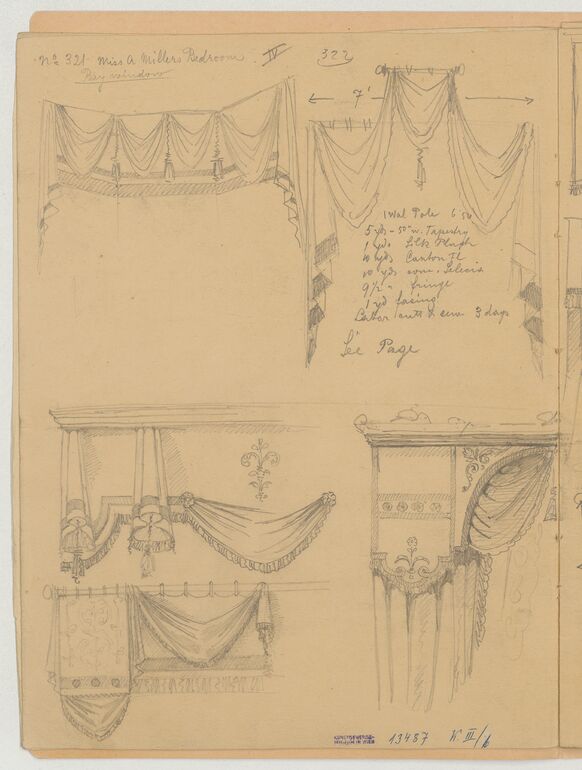 No 321 Miss A Millers Bedroom IV
Bay window
322
7'
1 Wal Pole 6'
5 yds - 50" w. Tapestry
1 yds Silk Plush
10 yds Canton Fl
10 yds com. Silecia
9 1/2 " fringe
1 yd facing
Labor cutt & sew 3 days
See Page
KUNSTGEWERBE-
MUSEUM IN WIEN
13487 K. III/6